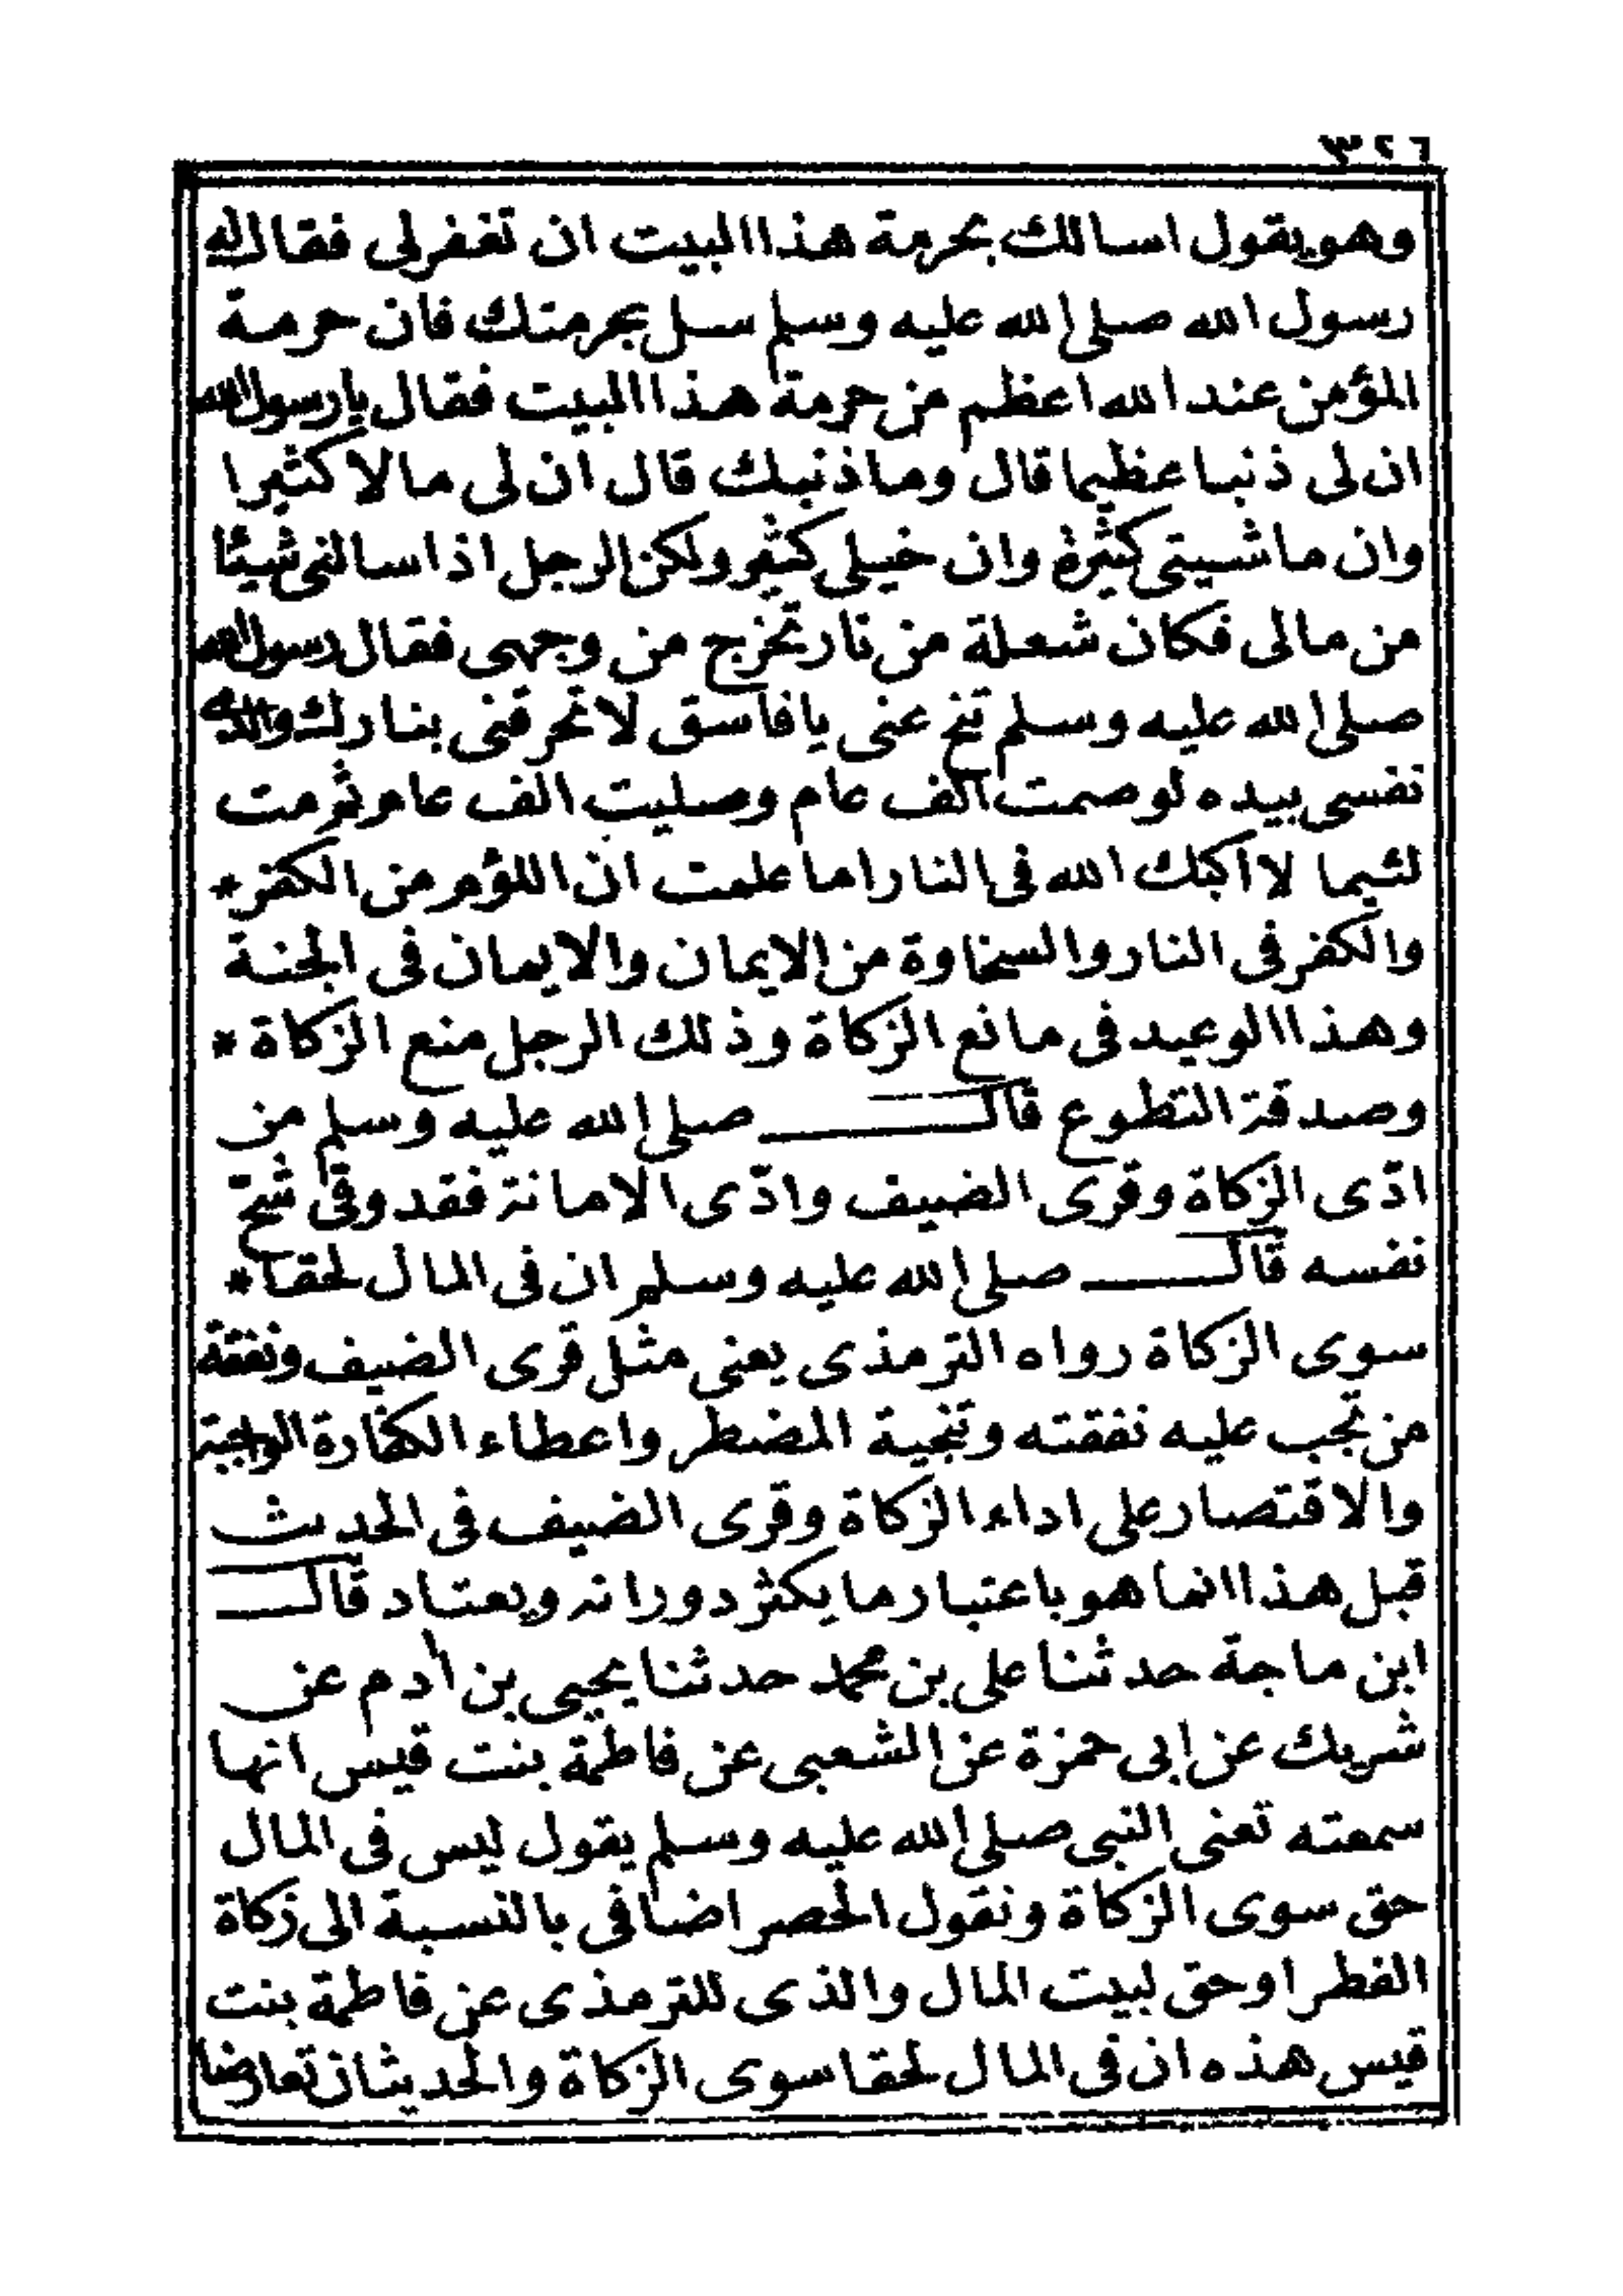 ٣٢٦
وهو يقول اسالك بحرمة هذا البيت ان تغفر لى فقال له
رسول الله صلى الله عليه وسلم سل بحرمتك فان حرمة
المؤمن عند الله اعظم من حرمة هذا البيت فقال يا رسول الله
ان لى ذنبا عظيما قال وما ذنبك قال ان لى مالا كثيرا
وان ماشيتى كثيرة وان خيلى كثير ولكن الرجل اذا سالنى شيئا
من مالى فكان شعلة من نار تخرج من وجهى فقال رسول الله
صلى الله عليه وسلم تنح عنى يا فاسق لا تحرقنى بنارك والذى
نفسى بيده لو صمت الف عام وصليت الف عام ثم مت
لئيما لاكبك الله فى النار اما علمت ان اللؤم من الكفر *
والكفر فى النار والسخاوة من الايمان والايمان فى الجنة
وهذا الوعيد فى مانع الزكاة وذلك الرجل منع الزكاة *
وصدقة التطوع قال صلى الله عليه وسلم من
ادّى الزكاة وقرى الضيف وادّى الامانة فقد وقى شحّ
نفسه قال صلى الله عليه وسلم ان فى المال لحقا *
سوى الزكاة رواه الترمذى يعنى مثل قرى الضيف ونفقة
من تجب عليه نفقته وتنجية المضطر واعطاء الكفارة الواجبة
والاقتصار على اداء الزكاة وقرى الضيف فى الحديث
قبل هذا انما هو باعتبار ما يكثر دورانه ويعتاد قال
ابن ماجة حدثنا على بن محمد حدثنا يحيى بن ادم عن
شريك عن ابى حمزة عن الشعبى عن فاطمة بنت قيس انها
سمعته تعنى النبى صلى الله عليه وسلم يقول ليس فى المال
حق سوى الزكاة ونقول الحصر اضافى بالنسبة الى زكاة
الفطر او حق لبيت المال والذى للترمذى عن فاطمة بنت
قيس هذه ان فى المال لحقا سوى الزكاة والحديثان تعارضا